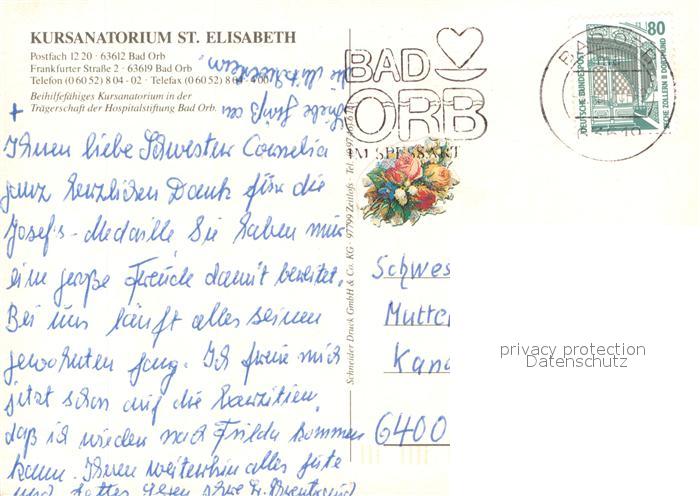 KURSANATORIUM ST. ELISABETH
Postfach 12 20 · 63612 Bad Orb
Frankfurter Straße 2 · 63619 Bad Orb
Telefon (0 60 52) 8 04 - 02 · Telefax (0 60 52) 8 04 - 400
Beihilfefähiges Kursanatorium in der
Trägerschaft der Hospitalstiftung Bad Orb.
+
Ihnen liebe Schwester Cornelia
ganz herzlichen Dank für die
Josefs-Medaille Sie haben mir
eine große Freude damit bereitet.
Bei uns läuft alles seinen
gewohnten Gang. Ich freue mich
jetzt schon auf die Exerzitien,
daß ich wieder nach Fulda kommen
kann. Ihnen weiterhin alles Gute
und Gottes Segen
BAD
ORB
IM SPESSART
80
DEUTSCHE BUNDESPOST
ZECHE ZOLLERN II DORTMUND
Schneider Druck GmbH & Co. KG · 97799 Zeitlofs · Tel.
Schwes
Mutte
Kana
6400
privacy protection
Datenschutz